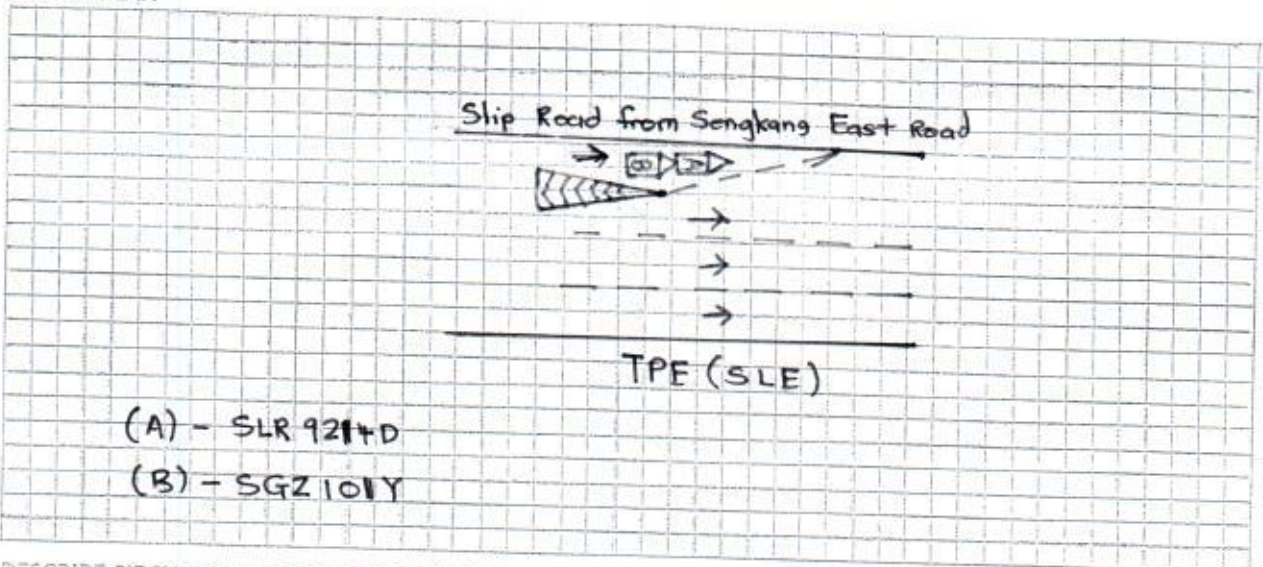 Slip Road from Sengkang East Road
TPE (SLE)
(A) - SLR 9214D
(B) - SGZ 1011Y